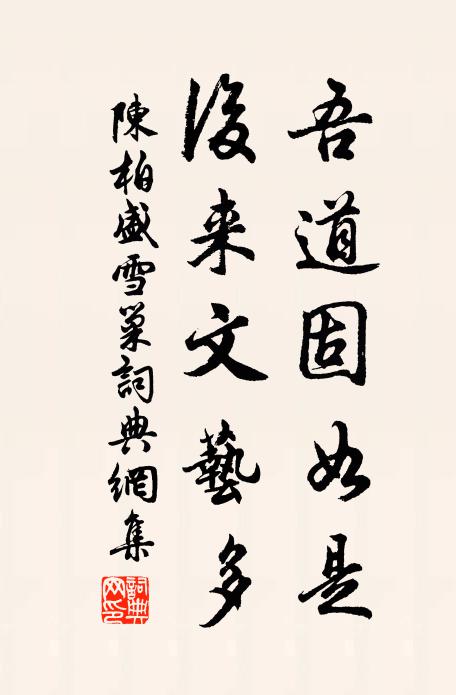 吾道固如是
後来文藝多
陳柏盛雪巢詞典網集
詞典网印